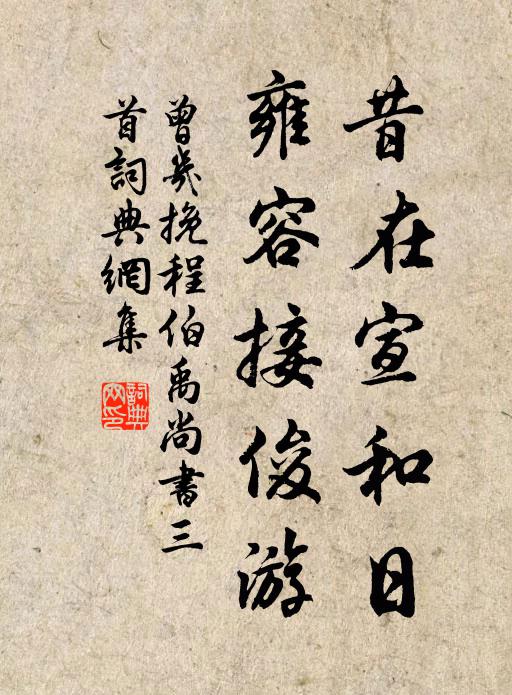 昔在宣和日
雍容接俊游
曾幾挽程伯禹尚書三
首詞典網集
詞典網印